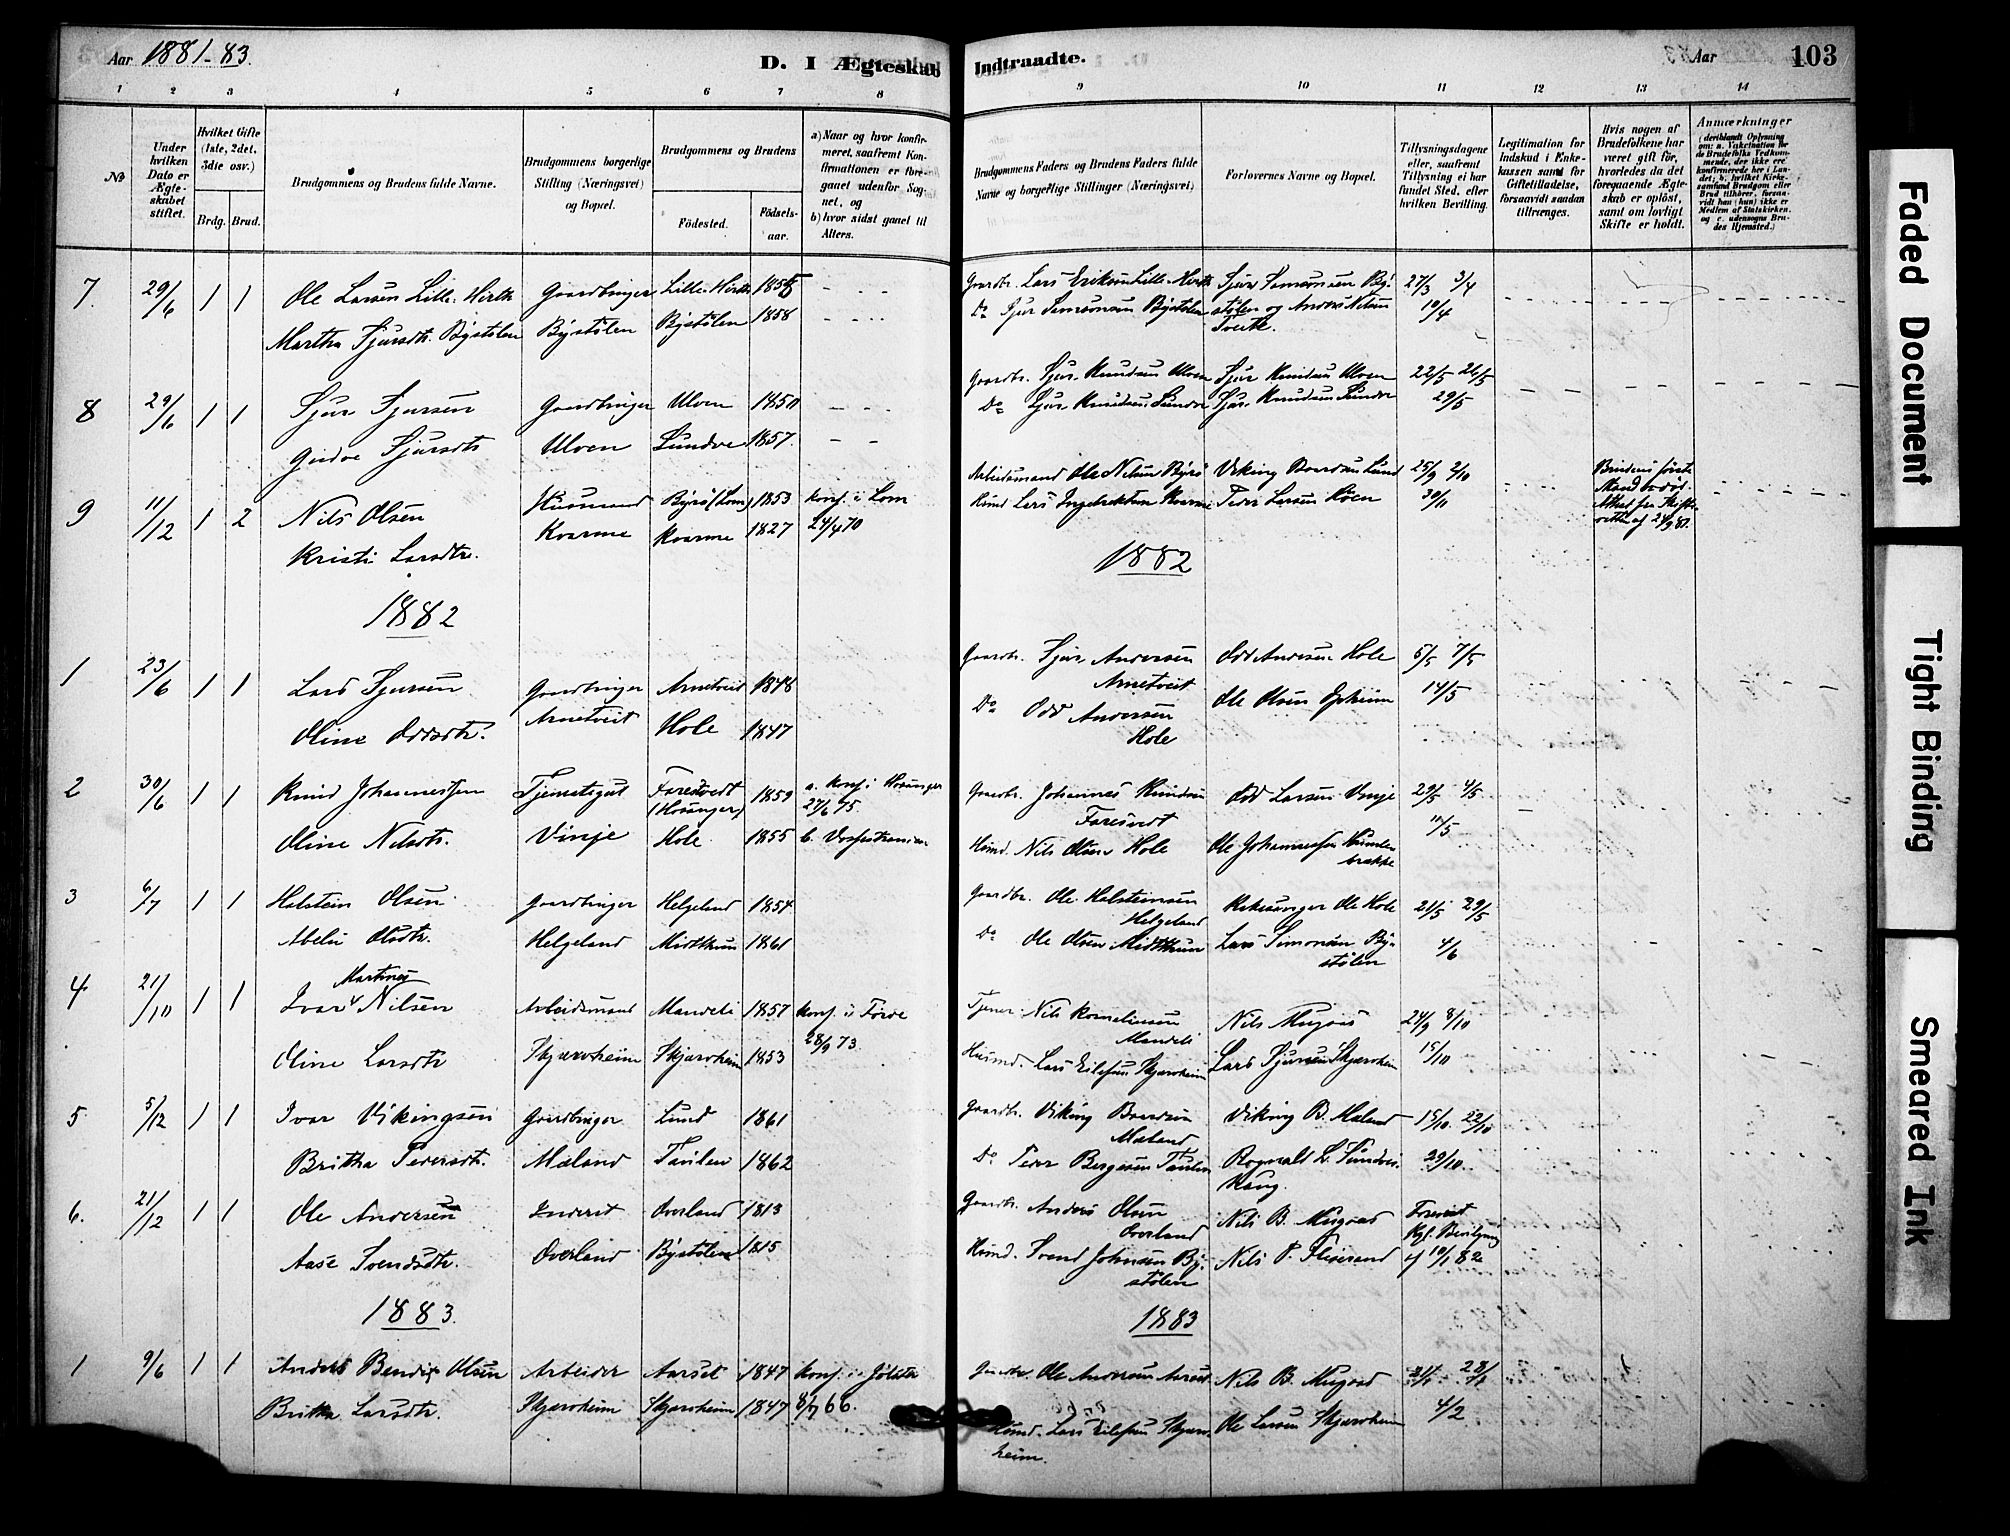 Aar 1881-83.
D. I Ægteskab
Indtraadte.
Aar
103
1 2 3 4 5 6 7 8
9 10 11 12 13 14
No
Under hvilken Dato er Ægteskabet stiftet.
Hvilket Gifte (1ste, 2det, 3die osv.)
Brdg. Brud.
Brudgommens og Brudens fulde Navne.
Brudgommens borgerlige Stilling (Næringsvei) og Bopæl.
Brudgommens og Brudens
Födested.
Födselsaar.
a) Naar og hvor konfirmeret, saafremt Konfirmationen er foregaaet udenfor Sognet, og
b) hvor sidst gaaet til Alters.
Brudgommens Faders og Brudens Faders fulde Navne og borgerlige Stillinger (Næringsvei)
Forlovernes Navne og Bopæl.
Tillysningsdagene eller, saafremt Tillysning ei har fundet Sted, efter hvilken Bevilling.
Legitimation for Indskud i Enkekassen samt for Giftetilladelse, forsaavidt saadan tiltrænges.
Hvis nogen af Brudefolkene har været gift för, hvorledes da det foregaaende Ægteskab er oplöst, samt om lovligt Skifte er holdt.
Anmærkninger
7. 29/6 1 1 Ole Larsen Lille-Hirth Gaardbruger Lille-Hirth
Martha Sjursdtr. Bystølen Bystølen Bystølen 1858
Gaardbr. Lars Eriksen Lille-Hirth Sjur Simonsen By- 27/3 3/4
Do Sjur Simonsen Bystølen stølen og Anders Nilsen 10/4
Tveite.
8 29/6 1 1 Sjur Sjursen Gaardbruger Ulven 1850
Gudve Sjursdtr Ulven Sundve 1857.
Gaardbr. Sjur Knudsen Ulven Sjur Knudsen Ulven 22/5 26/5
Do Sjur Knudsen Sundve Sjur Knudsen Sundve 29/5
9 11/12 1 2 Nils Olsen Husmand (Lom) 1853 konf. i Lom
Kristi Larsdtr. Kvarme Kvarme 1827 24/4 70
Arbeidsmand Ole Nilsen Viking Baardsen Lund 25/9 2/10
Husmd Lars Kvarme Peder Larsen
Brudens første
Mand er død.
Attest fra Skifte-
retten af 24/9 81.
1882
1882
1 23/6 1 1 Lars Sjursen Gaardbruger Arnetveit 1848
Oline Oddsdtr. Arnetveit Hole 1847
Gaardbr. Sjur Andersen Odd Andersen Hole 5/5 7/5
Arnetveit
Do Odd Andersen Ole Olsen Opheim 14/5
Hole
2 30/6 1 1 Knud Johannessen Tjenestegut Foresvedt (Hosanger) 1859 a. konf. i Hosanger 27/6 75
Oline Nilsdtr. Vinje Hole 1855 b. Vossestranden
Gaardbr. Johannes Knudsen Odd Larsen Vinje 29/5 4/5
Foresvedt 11/5
Husmd. Nils Olsen Hole Ole Johannessen
3 6/7 1 1 Halstein Olsen Gaardbruger Helgeland 1854
Abelu Olsdtr. Helgeland Midttun 1861
Gaardbr. Ole Halsteinsen Kirkesanger Ole Hole 21/5 29/5
Helgeland
Do Ole Olsen Midttun Lars Simonsen By- 4/6
stølen
4. 21/10 1 1 Ivar Martines Nilsen Arbeidsmand Mandeli 1857 konf. i Førde
Oline Larsdtr Skjærvheim Skjærvheim 1853 28/9 73.
Tjener Nils Kornelinsen Nils Mugaas 24/9 8/10
Mandeli
Husmd. Lars Eilefsen Skjærvheim Lars Sjursen Skjærvheim 15/10
5 5/12 1 1 Ivar Vikingsen Gaardbruger Lund 1861
Britha Pedersdtr. Mæland Taulen 1862
Gaardbr. Viking Baardsen Viking B. Mæland 15/10. 22/10
Mæland
Do Peder Bergesen Taulen Rognald L. Sundve 29/10.
Haug.
6. 21/12 1 1 Ole Andersen Inderst Overland 1813
Aase Svendsdtr. Overland Bystølen 1815
Gaardbr. Anders Olsen Nils B. Mugaas Forevist
Overland Kgl. Bevilgning
Husmd. Svend Johnsen By- Nils P. af 10/1 82
stølen
1883.
1883
1 9/6 1 1 Anders Bendix Olsen Arbeider Aarset 1847 konf. i Jølster
Britha Larsdtr. Skjærvheim Skjærvheim 1847 8/7 66.
Ole Andersen Aarset Nils B. Mugaas 21/1 28/1
Husmd. Lars Eilefsen Skjærv- Ole Larsen Skjærvheim 4/2
heim.
Faded Document
Tight Binding
Smeared Ink